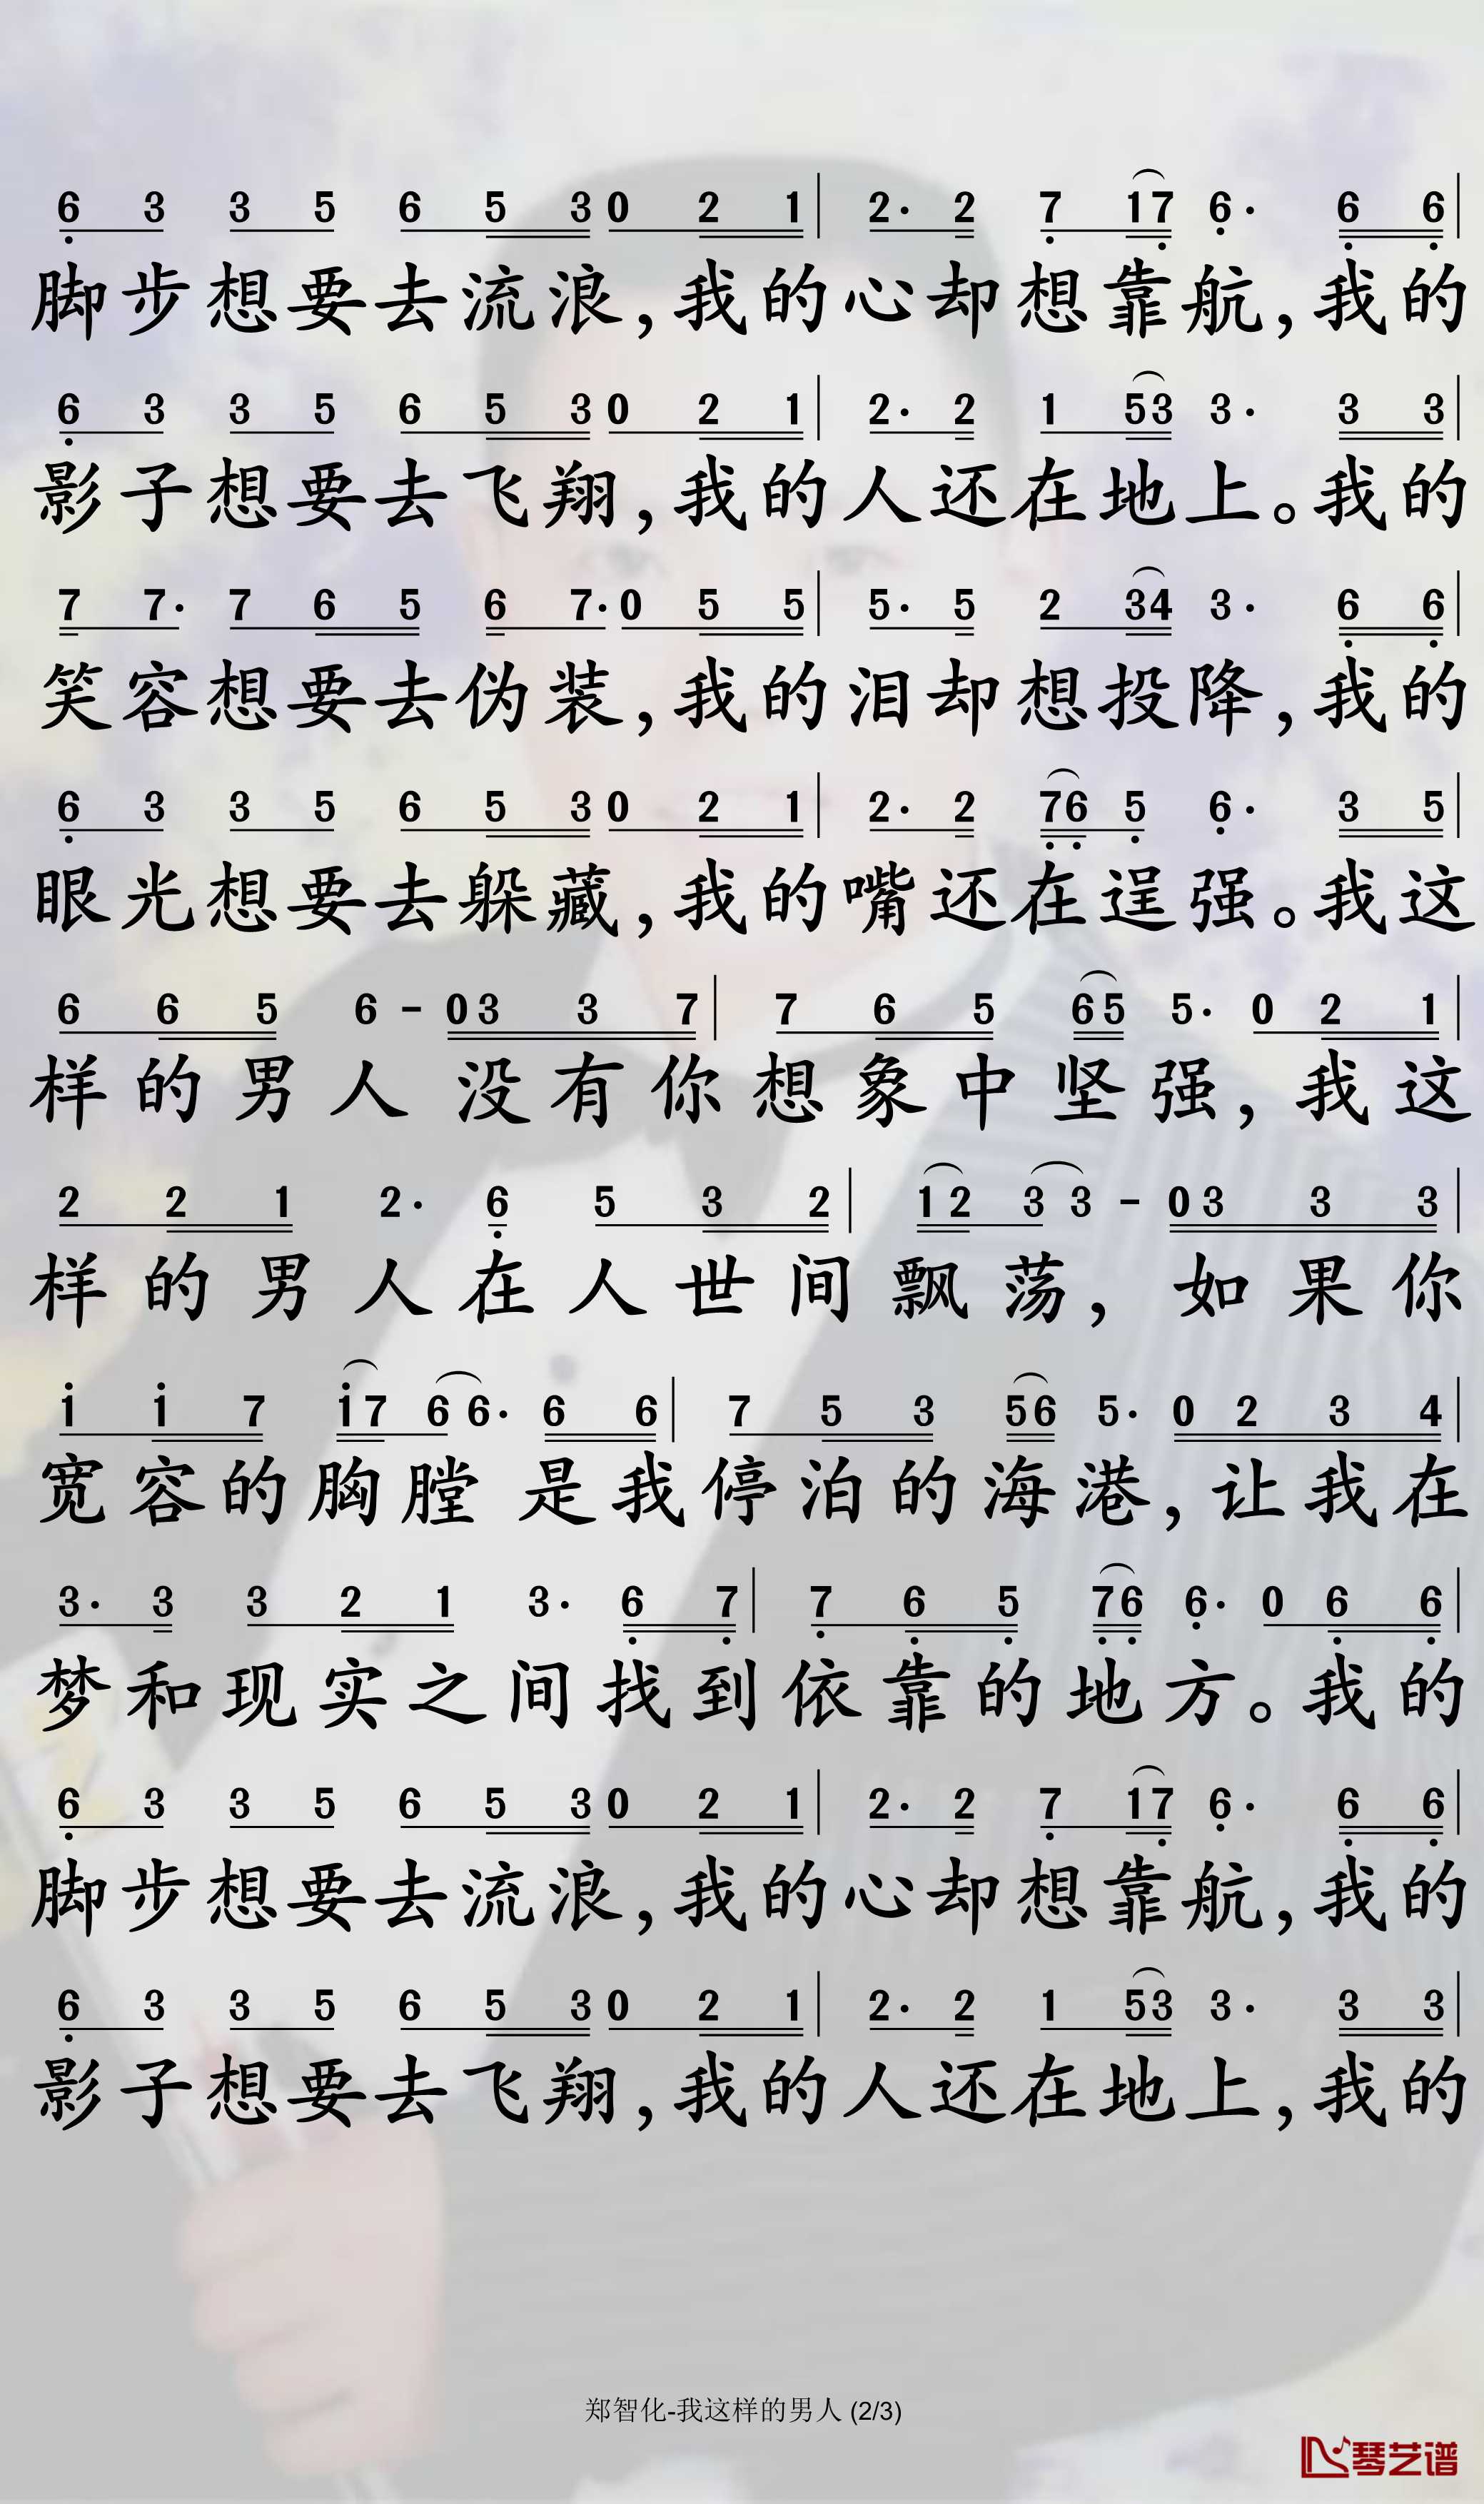 6 3 3 5 6 5 3 0 2 1 | 2· 2 7 1 7 6· 6 6 |
脚步想要去流浪,我的心却想靠航,我的
6 3 3 5 6 5 3 0 2 1 | 2· 2 1 5 3 3· 3 3 |
影子想要去飞翔,我的人还在地上。我的
7 7· 7 6 5 6 7· 0 5 5 | 5· 5 2 3 4 3· 6 6 |
笑容想要去伪装,我的泪却想投降,我的
6 3 3 5 6 5 3 0 2 1 | 2· 2 7 6 5 6· 3 5 |
眼光想要去躲藏,我的嘴还在逞强。我这
6 6 5 6 - 0 3 3 7 | 7 6 5 6 5 5· 0 2 1 |
样的男人没有你想象中坚强,我这
2 2 1 2· 6 5 3 2 | 1 2 3 3 - 0 3 3 3 |
样的男人在人世间飘荡,如果你
1 1 7 1 7 6 6· 6 6 | 7 5 3 5 6 5· 0 2 3 4 |
宽容的胸膛是我停泊的海港,让我在
3· 3 3 2 1 3· 6 7 | 7 6 5 7 6 6· 0 6 6 |
梦和现实之间找到依靠的地方。我的
6 3 3 5 6 5 3 0 2 1 | 2· 2 7 1 7 6· 6 6 |
脚步想要去流浪,我的心却想靠航,我的
6 3 3 5 6 5 3 0 2 1 | 2· 2 1 5 3 3· 3 3 |
影子想要去飞翔,我的人还在地上,我的
郑智化-我这样的男人 (2/3)
琴艺谱